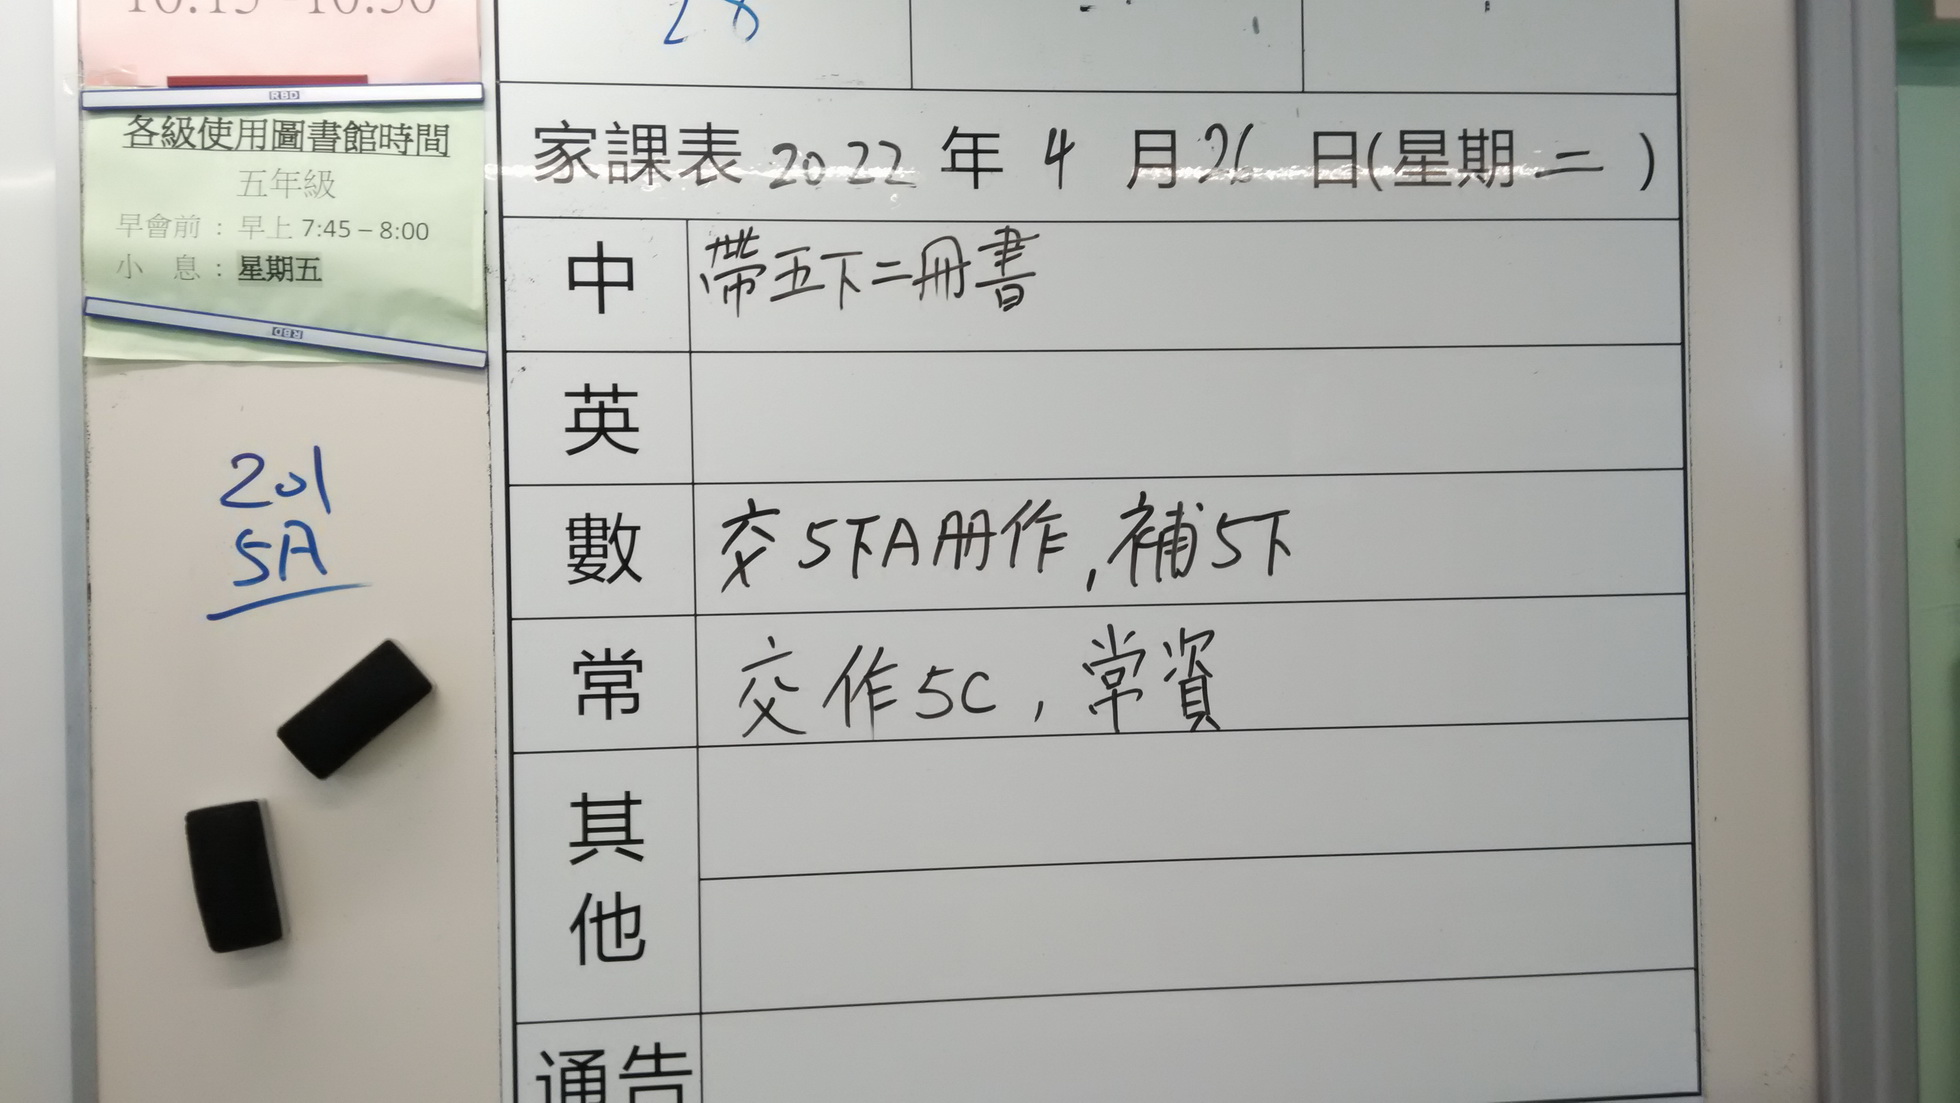 10:15 -10:30
RBD
各級使用圖書館時間
五年級
早會前：早上 7:45 – 8:00
小　息：星期五
RBD
201
5A
28
家課表 2022 年 4 月 26 日(星期二)
中 帶五下二冊書
英
數 交5下A冊作,補5下
常 交作5C,常資
其他
通告